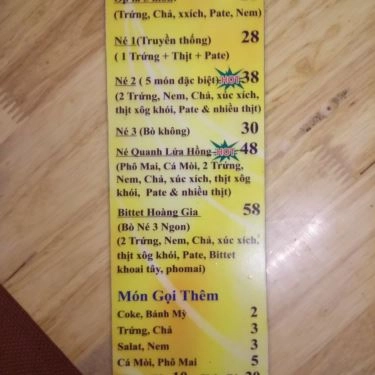 (Trứng, Chả, xxích, Pate, Nem)
Né 1(Truyền thống) 28
( 1 Trứng + Thịt + Pate)
Né 2 ( 5 món đặc biệt) HOT 38
(2 Trứng, Nem, Chả, xúc xích,
thịt xôg khói, Pate & nhiều thịt)
Né 3 (Bò không) 30
Né Quanh Lửa Hồng HOT 48
(Phô Mai, Cá Mòi, 2 Trứng,
Nem, Chả, xúc xích, thịt xôg
khói, Pate & nhiều thịt)
Bittet Hoàng Gia 58
(Bò Né 3 Ngon)
(2 Trứng, Nem, Chả, xúc xích,
thịt xôg khói, Pate, Bittet
khoai tây, phomai)
Món Gọi Thêm
Coke, Bánh Mỳ 2
Trứng, Chả 3
Salat, Nem 3
Cá Mòi, Phô Mai 5